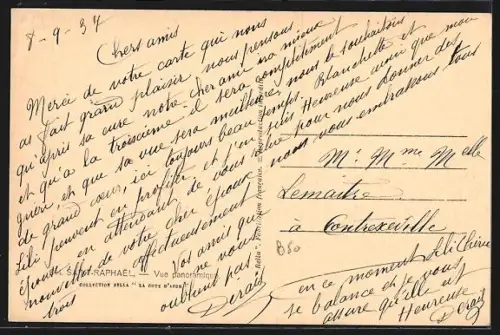 8-9-37
Chers amis
Merci de votre carte qui nous
as fait grand plaisir nous pensons
qu'après sa cure notre cher ami ira mieux
et qu'a la troisième il sera complètement
guéri et que sa vue sera meilleure nous le souhaitons
de grand coeur, ici toujours beau temps. Blanchette et
Lili peuvent en profiter et j'en suis Heureuse ainsi que mon
épouse en attendant de vous pour nous donner des
nouvelles de votre cher époux nous vous embrassons tous
trois affectueusement
Vos amis qui
ne vous
oublient pas
Derais
SAINT-RAPHAËL, — Vue panoramique
COLLECTION BELLA "LA COTE D'AZUR"
"Bella" Fabrication Française. — Reproduction interdite
Mr Mme Melle
Lemaitre
à Contrexéville
B50
en ce moment Lili Chérie
se balance et je vous
assure qu'elle est
Heureuse
Derais